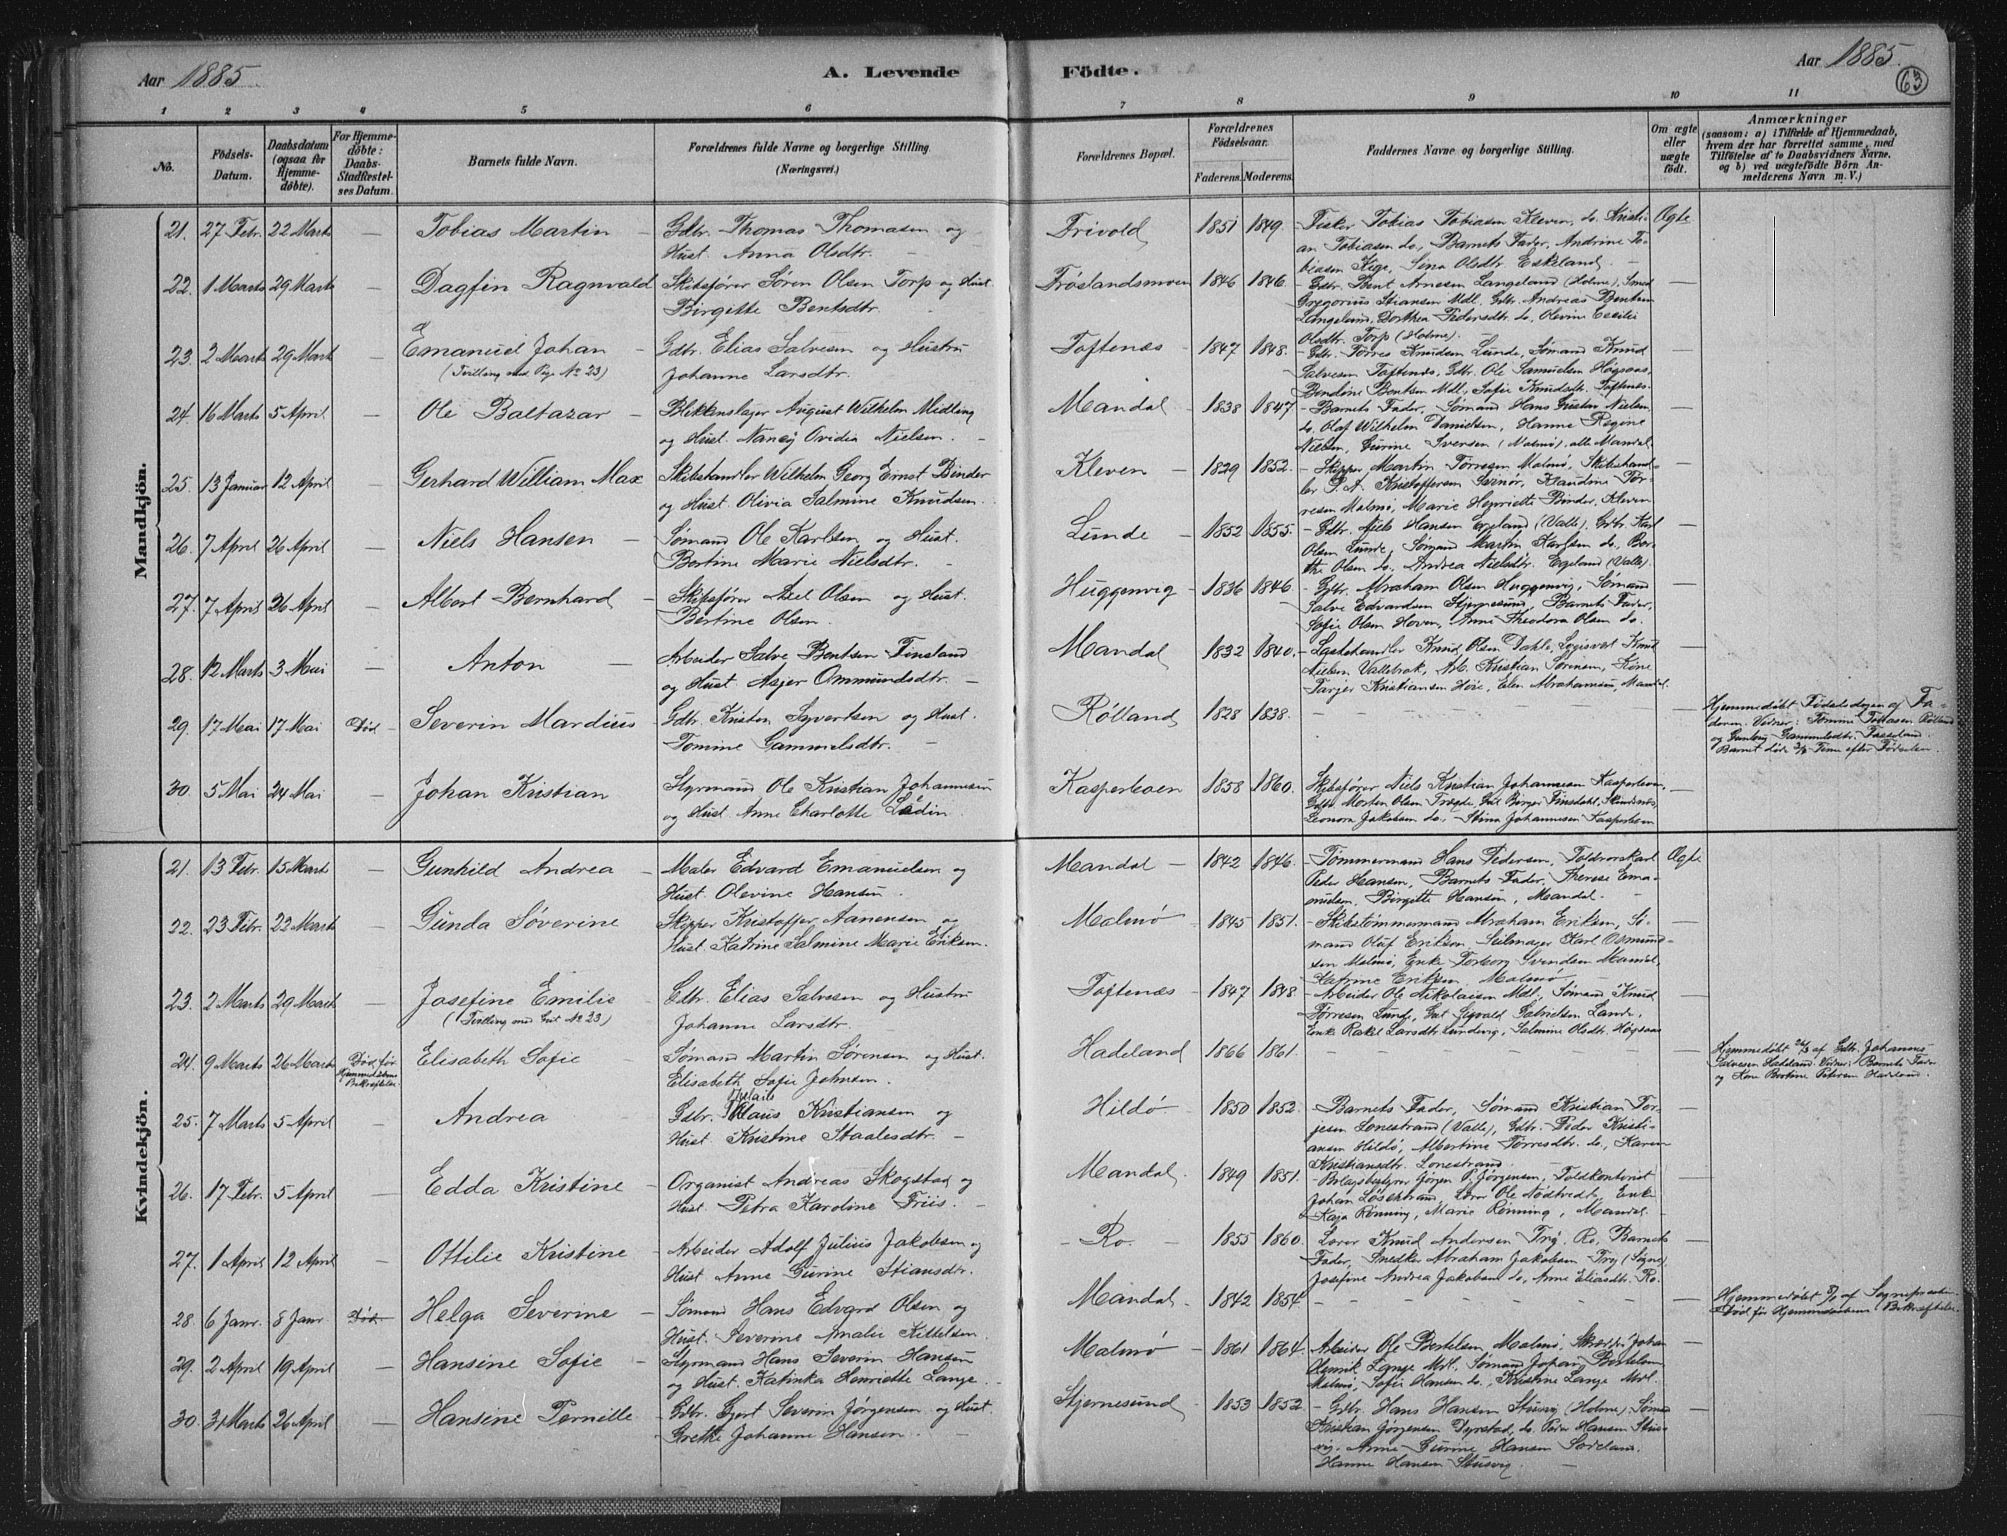 Aar 1885
A. Levende
Födte.
Aar 1885.
63
1 2 3 4 5 6 7 8 9 10 11
No.
Födsels-Datum.
Daabsdatum (ogsaa for Hjemmedöbte).
For Hjemmedöbte: Daabs-Stadfæstelses Datum.
Barnets fulde Navn.
Forældrenes fulde Navne og borgerlige Stilling. (Næringsvei.)
Forældrenes Bopæl.
Forældrenes Födselsaar.
Faderens. Moderens.
Faddernes Navne og borgerlige Stilling.
Om ægte eller uægte födt.
Anmærkninger
(saasom: a) i Tilfælde af Hjemmedaab, hvem der har forrettet samme, med Tilföielse af to Daabsvidners Navne, og b) ved uægtefödte Börn Anmelderens Navn m. V.)
Mandkjön.
21. 27 Febr. 22 Marts — Tobias Martin Gdbr. Thomas Thomasen og
Hust. Anna Olsdtr. —
Frivold 1851 1849.
— Fisker Tobias Tobiasen Kleven, do. Kristi-
an Tobiasen do, Barnets Fader, Andrine To-
biasen Kige, Sina Olsdtr Eskeland. Ægte
22. 1 Marts 29 Marts — Dagfin Ragnvald Skibsfører Søren Olsen Torp og Hust.
Birgitte Bentsdtr.
Frøslandsmoen 1846 1846.
— Gdbr. Bent Arnesen Langeland (Holme), Smed
Gregorius Stiansen Mdl, Gdbr. Andreas Bentsen
Langeland, Dorthea Pedersdtr do, Olevine Cecilie
Olsdtr. Torp (Holme). —
23. 2 Marts 29 Marts — Emanuel Johan —
(Tvilling med Pige No 23)
Gdbr. Elias Salvesen og Hustru
Johanne Larsdtr.
Toftenæs — 1847 1848.
— Gdbr. Torres Knudsen Lunde, Sømand Knud
Salvesen Toftenæs, Gdbr. Ole Samuelsen Høgsaas,
Bendine Bentsen Mdl, Sofie Knudsdtr. Toftenæs. —
24 16 Marts 5 April — Ole Baltazar — Blikkenslager August Wilhelm Midling
og Hust. Nancy Ovidia Nielsen. —
Mandal — 1838 1847
— Barnets Fader, Sømand Hans Gustav Nielsen,
do. Olaf Wilhelm Danielsen, Hanne Regine
Nielsen, Gurine Iversen (Malmø), alle Mandal. —
25. 13 Januar 12 April — Gerhard William Max Skibshandler Wilhelm Georg Ernst Binder
og Hust. Olivia Salmine Knudsen.
Kleven — 1829 1852.
— Skipper Martin Torresen Malmø, Skibshand-
ler P. A. Kristoffersen Svinør, Klaudine Tor-
resen Malmø, Marie Henriette Binder, Kleven —
26. 7 April 26 April — Niels Hansen — Sømand Ole Karlsen og Hust.
Bertine Marie Nielsdtr. —
Lunde — 1852 1855.
— Gdbr. Niels Hansen Egeland (Valle), Gdbr Karl
Olsen Lunde, Sømand Martin Karlsen do, Ber-
the Olsen do, Andrea Nielsdtr. Egeland (Valle). —
27. 7 April 26 April — Albert Bernhard — Skibsfører Axel Olsen og Hust.
Bertine Olsen. —
Huggenvig — 1836 1846.
— Gdbr. Abraham Olsen Huggenvig, Sømand
Salve Edvardsen Stjernesund, Barnets Fader,
Sofie Olsen Hoven, Anne Theodora Olsen do. —
28. 12 Marts 3 Mai — Anton — Arbeider Salve Bentsen Finsland
og Hust. Asjer Ommundsdtr. —
Mandal — 1832 1840.
— Lastehandler Knud Olsen Dahle, Logisvert Knud
Nielsen Vallebrok, Arb. Kristian Sørensen, Kone
Tarjer Kristiansen Høie, Elen Abrahamsen, Mandal. —
29. 17 Mai 17 Mai Död Severin Mardius Gdbr. Kristen Syvertsen og Hust.
Tomine Gammelsdtr. —
Rølland 1828 1838.
Hjemmedøbt Fødselsdagen af Fa-
deren. Vidner: Tomine Rølland
og Gunborg Gammelsdtr.
Barnet døde Time efter Fødselen.
30. 5 Mai 24 Mai — Johan Kristian Styrmand Ole Kristian Johannesen
og Hust. Anne Charlotte Lödin.
Kasperboen 1858 1860.
Skibsfører Niels Kristian Johannesen Kasperboen,
Gdbr. Morten Olsen Trægde, Gut Børger Finsdahl, Skindsnæs,
Leonora Jakobsen do, Stina Johannesen Kasperboen —
Kvindekjön.
21. 13 Febr. 15 Marts — Gunhild Andrea — Maler Edvard Emanuelsen og
Hust. Olevine Hansen.
Mandal — 1842 1846.
— Tømmermand Hans Pedersen, Toldrorskarl
Peder Hansen, Barnets Fader, Therese Ema-
nuelsen, Birgitte Hansen, Mandal. Ægte
22. 23 Febr. 22 Marts — Gunda Søverine Skipper Kristoffer Aanensen og
Hust. Katrine Salmine Marie Eriksen.
Malmø 1845 1851.
— Skibstømmermand Abraham Eriksen, Sö-
mand Oluf Erikson, Seilmager Karl Osmund-
sen Malmø, Enke Torborg Svendsen Mandal,
Katrine Eriksen, Malmø —
23. 2 Marts 29 Marts — Josefine Emilie —
(Tvilling med Gut No 23)
Gdbr. Elias Salvesen og Hustru
Johanne Larsdtr.
Toftenæs 1847 1848.
— Arbeider Ole Nikolaisen Mdl., Sømand Knud
Torresen Lunde, Gut Sigvald Gabrielsen Lande,
Enke Rakel Larsdtr. Lundevig, Salmine Olsdtr. Høgsaas —
24. 9 Marts 26 Marts Död før Hjemmedaabens Bekræftelse. Elisabeth Sofie — Sømand Martin Sørensen og Hust.
Elisabeth Sofie Johnsen.
Hadeland 1866 1861.
Hjemmedøbt 26/3 af Gdbr. Johannes
Salvesen Hadeland. Vidner: Barnets Fader
og Kone Bertine Petersen Hadeland.
25. 7 Marts 5 April — Andrea Gdbr. Klaus Kristiansen og
Hust. Kristine Staalesdtr. —
Hildø — 1850 1852.
— Barnets Fader, Sømand Kristian Tor-
jesen Lonestrand (Valle), Gdbr. Peder Kristi-
ansen Hildø, Albertine Torresdtr. do, Karen
Kristiansdtr. Lonestrand. —
26. 17 Febr. 5 April — Edda Kristine — Organist Andreas Skogstad og
Hust. Petra Karoline Friis. —
Mandal. 1849 1851.
— Bogbinder Jørgen P. Jørgensen, Toldkontorist
Johan Løsestrand, Lærer Ole Nødtvedt, Enke
Kaja Rønning, Marie Rønning, Mandal. —
27. 1 April 12 April — Ottilie Kristine — Arbeider Adolf Julius Jakobsen og
Hust. Anne Gurine Stiansdtr.
— Ro. — 1855 1860.
Lærer Knud Andersen Try, Ro, Barnets
Fader, Snedker Abraham Jakobsen Try (Søgne),
Josefine Andrea Jakobsen do, Anne Eliasdtr. Ro. —
28. 6 Janr. 8 Janr Död Helga Severine — Sømand Hans Edvard Olsen og
Hust. Severine Amalie Kittelsen.
Mandal — 1842 1854.
Hjemmedøbt 8/1 af Sognepræsten
Død før Hjemmedaabens Bekræftelse.
29. 2 April 19 April — Hansine Sofie — Styrmand Hans Severin Hansen
og Hust. Katinka Henriette Lange.
Malmø — 1861 1864.
Arbeider Ole Bertelsen Malmø, Skrædder Johan
Henrik Lange Mdl., Sømand Johan Bertelsen
Malmø, Sofie Hansen do., Kristine Lange Mdl. —
30. 31 Marts 26 April — Hansine Pernille — Gdbr. Gjert Severin Jørgensen og Hust
Grethe Johanne Hansen. —
Stjernesund 1853 1852.
— Gdbr. Hans Hansen Stusvig (Holme), Sømand
Kristian Jørgensen Dyrstad, do. Peder Hansen Stus-
vig, Anne Gurine Hansen
Hanne Hansen Stusvig. —